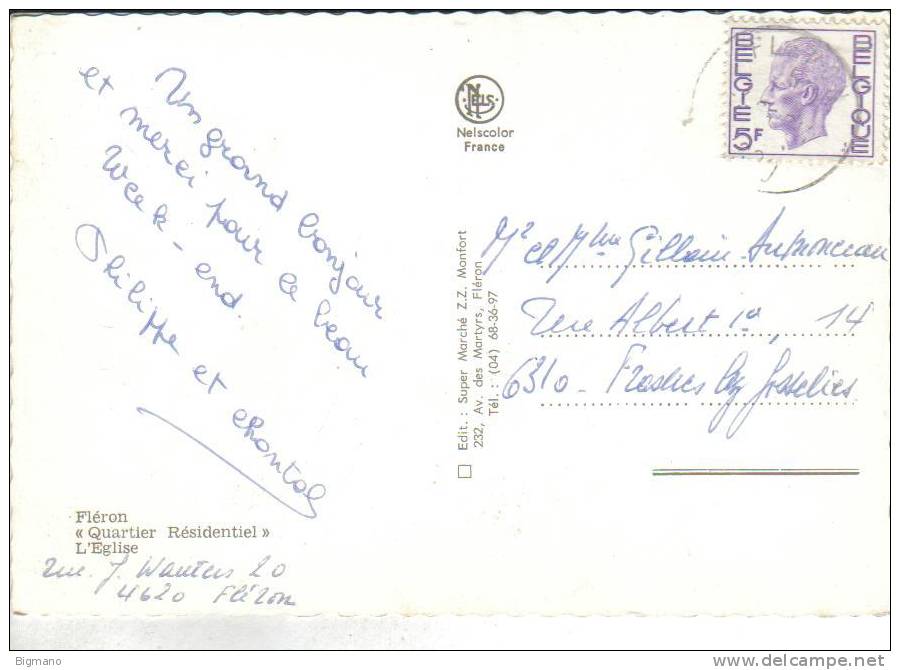 Un grand bonjour
et merci pour ce beau
Week-end.
Philippe et Chantal
Fléron
« Quartier Résidentiel »
L'Eglise
rue J. Wauters 20
4620 Fléron
NELS
Nelscolor
France
Edit. : Super Marché Z.Z. Monfort
232, Av. des Martyrs, Fléron
Tél. : (04) 68-36-97
BELGIE BELGIQUE
5F
Mr et Mme Gillain
rue Albert 1er, 14
6310 - Frasnes lez Gosselies
Bigmano
delcampe.net